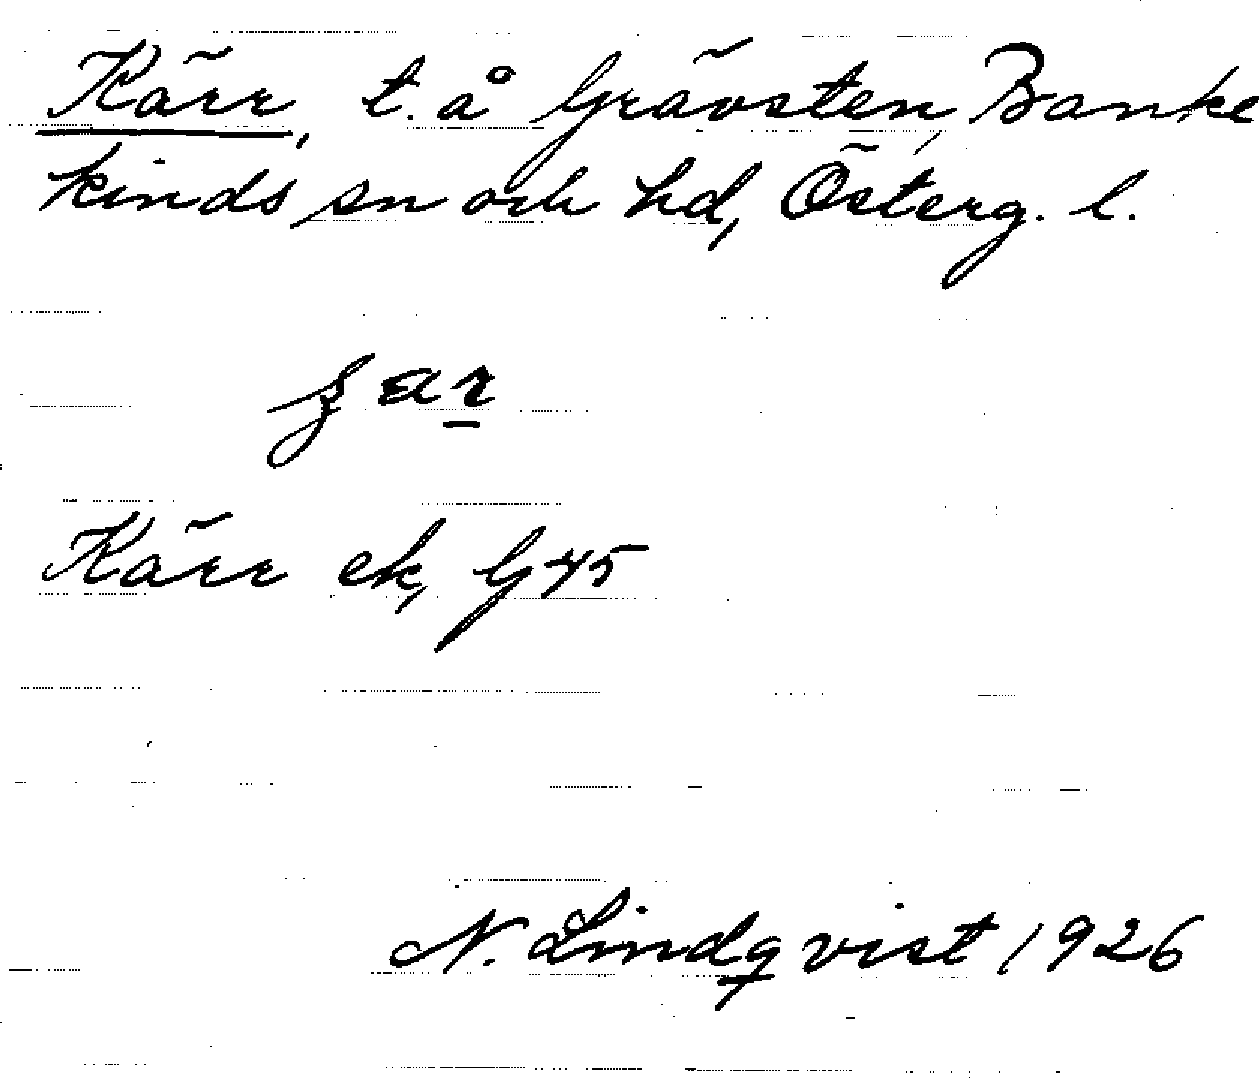 Kärr, t. å Grävsten, Banke
kinds sn och hd, Österg. l.
Kärr ek, G 45
N. Lindqvist 1926